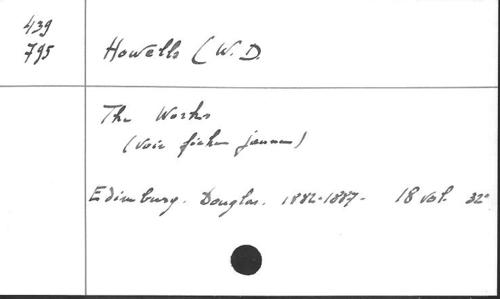 439
795
Howells (W. D.
The Works
(voir fiche jaune)
Edimburg. Douglas. 1882-1887- 18 vol. 32°